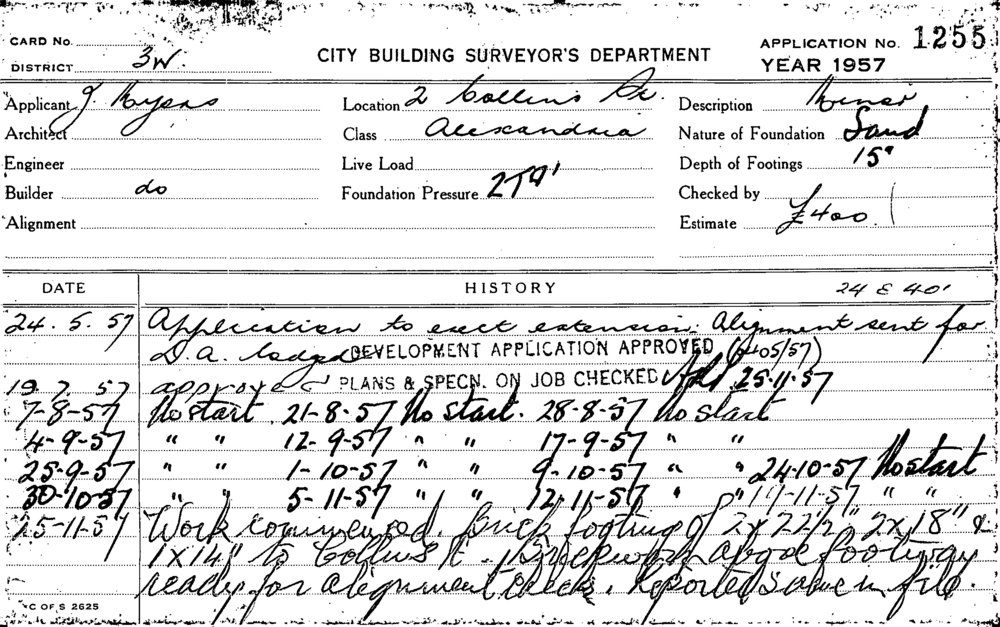 CARD No.
DISTRICT 3W.
CITY BUILDING SURVEYOR'S DEPARTMENT
APPLICATION No. 1255
YEAR 1957
Applicant J. Myers
Architect
Engineer
Builder do
Alignment
Location 2 Collins St.
Class Alexandria
Live Load
Foundation Pressure 2T □'
Description Minor
Nature of Foundation Sand
Depth of Footings 15"
Checked by
Estimate £400.
DATE HISTORY 24 E 40'
24. 5. 57 Application to erect extension. Alignment sent for
D.A. lodged DEVELOPMENT APPLICATION APPROVED (405/57)
19. 7. 57 approved PLANS & SPECN. ON JOB CHECKED 25.11.57
7-8-57 No start. 21-8-57 No start. 28-8-57 No start
4-9-57 " " 12-9-57 " " 17-9-57 " "
25-9-57 " " 1-10-57 " " 9-10-57 " " 24-10-57 No start
30-10-57 " " 5-11-57 " " 12-11-57 " " 19-11-57 " "
25-11-57 Work commenced. Brick footing of 2x22½" 2x18" &
1x14" to Collins St. Brickwork above footings
ready for alignment check. Reported same in file.
C OF S 2625